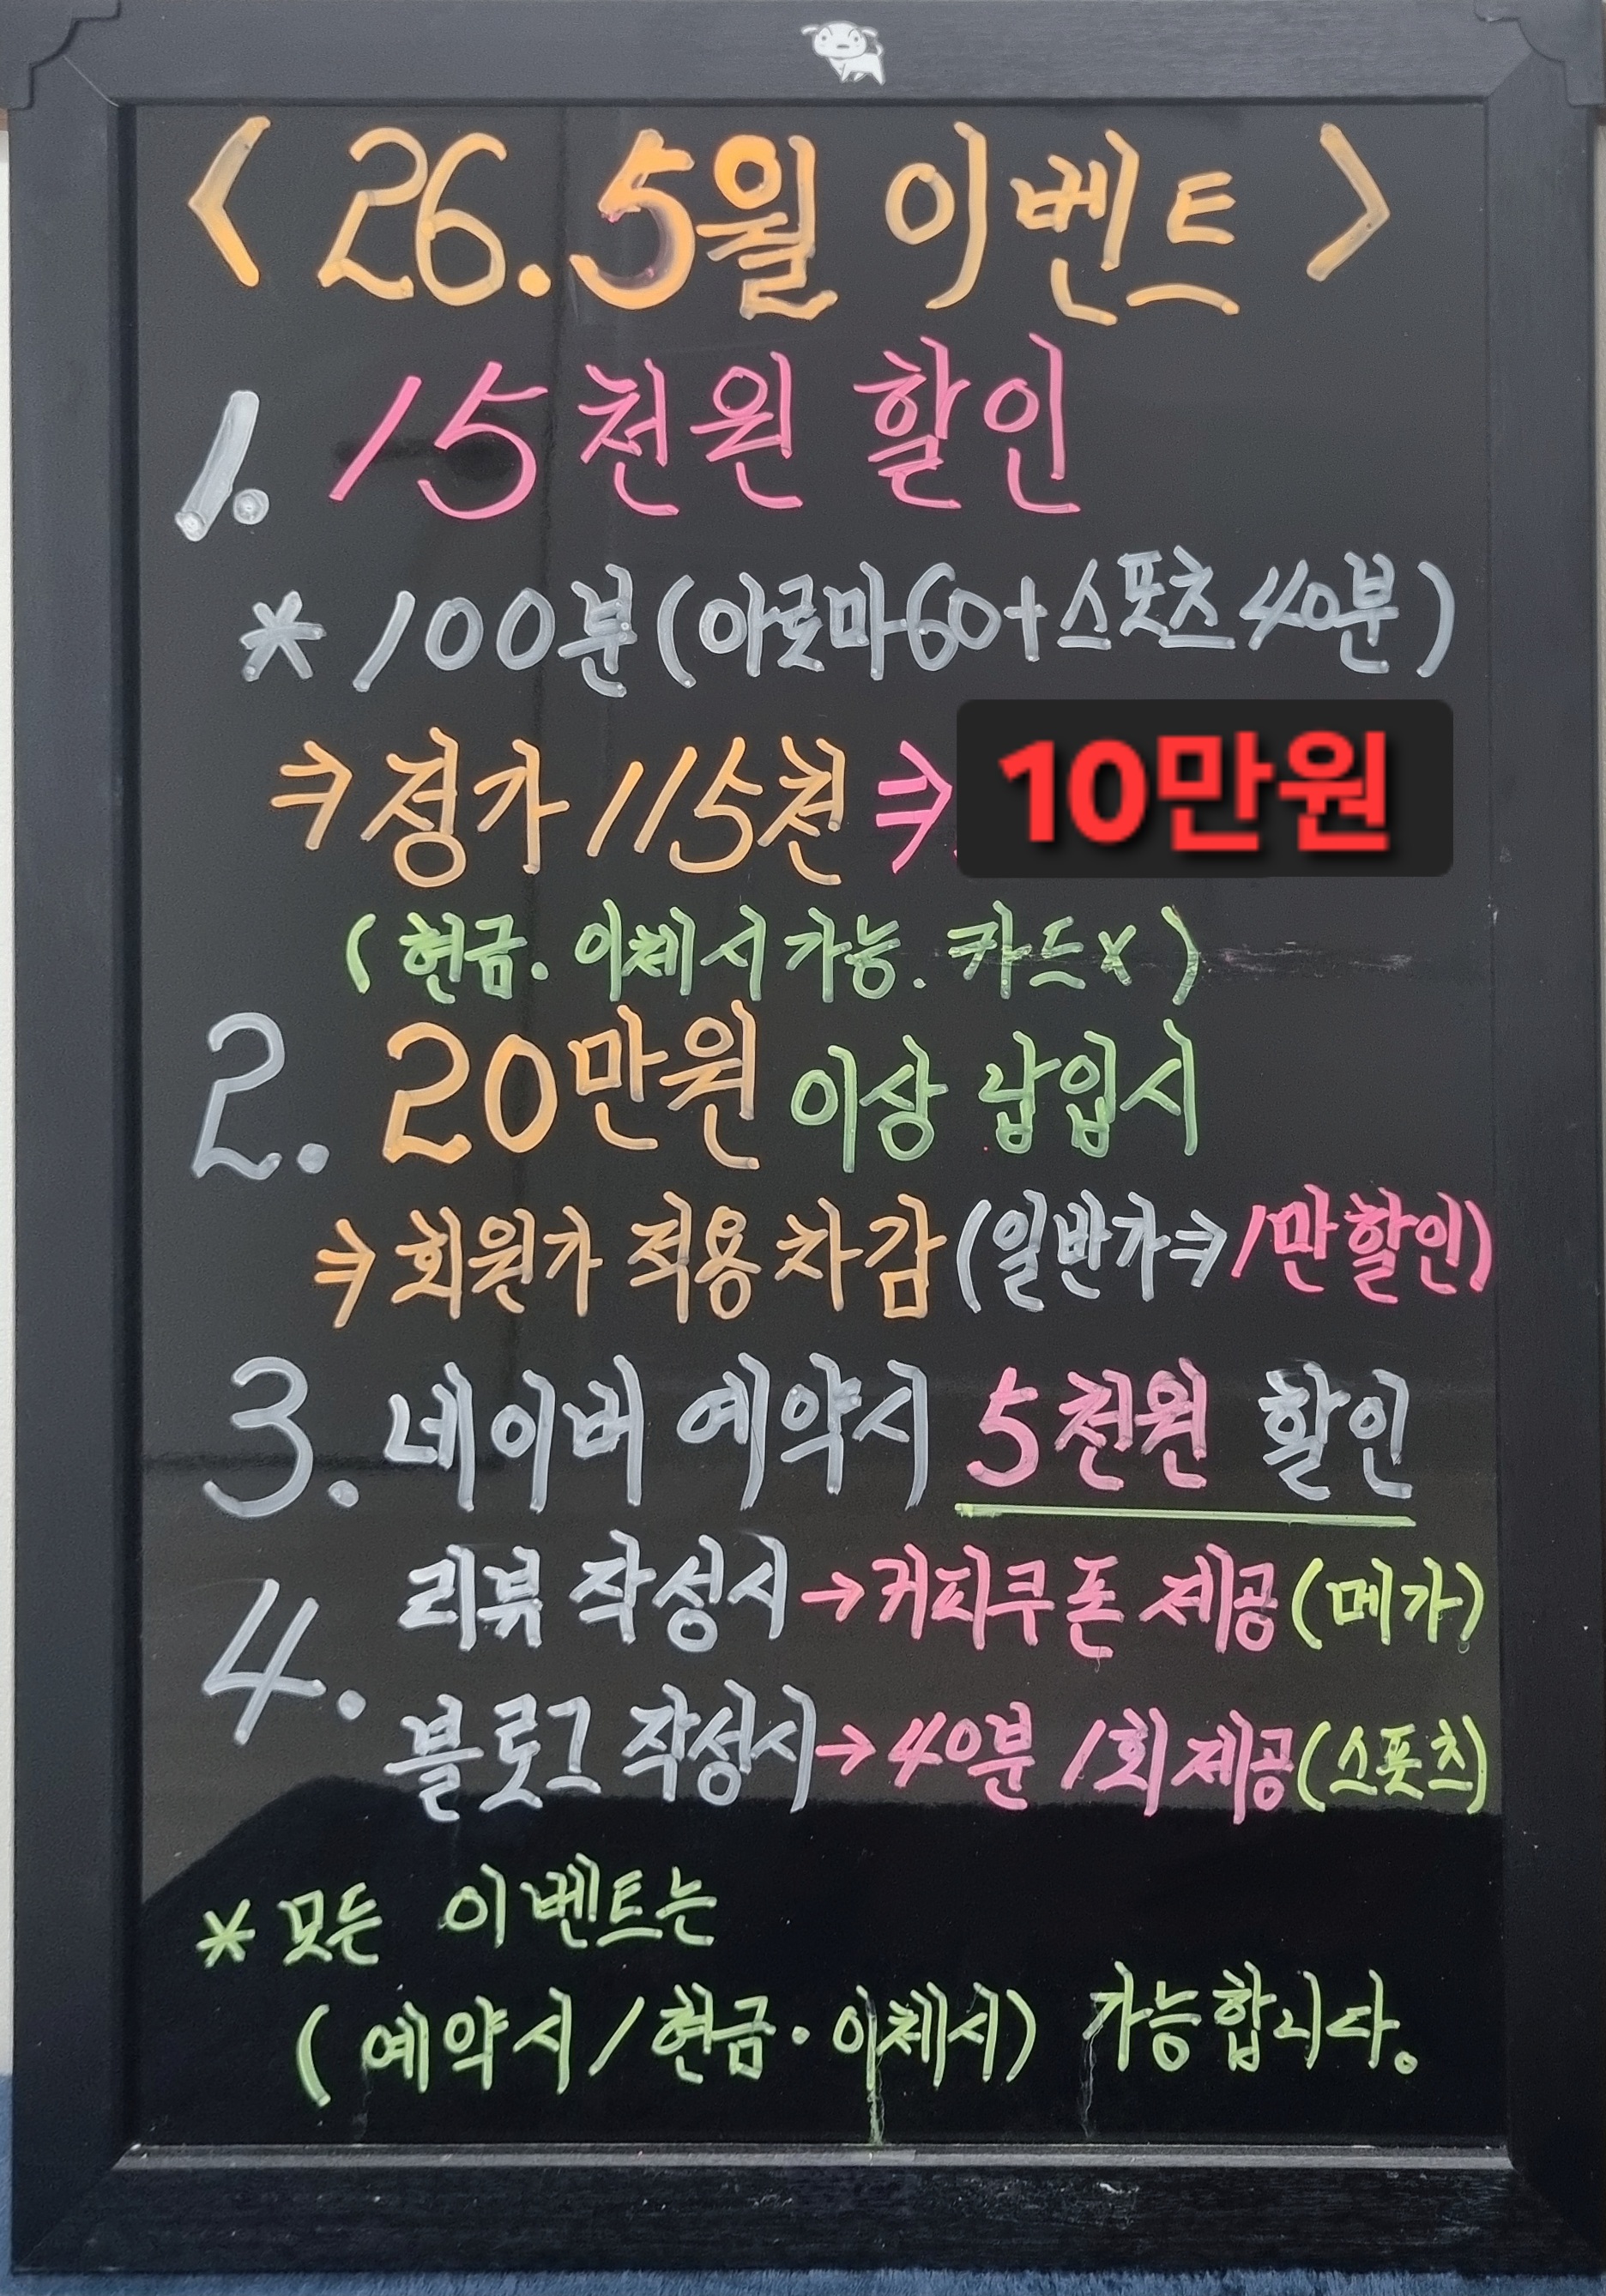 < 26.5월 이벤트 >
1. 15천원 할인
* 100분(아로마60+스포츠40분)
⇒ 정가 115천 ⇒ 10만원
(현금. 이체시 가능. 카드x)
2. 20만원 이상 납입시
⇒ 회원가 적용 차감(일반가⇒1만할인)
3. 네이버 예약시 5천원 할인
4. 리뷰 작성시→커피쿠폰 제공(메가)
블로그 작성시→40분 1회 제공(스포츠)
* 모든 이벤트는
(예약시/현금·이체시) 가능합니다.